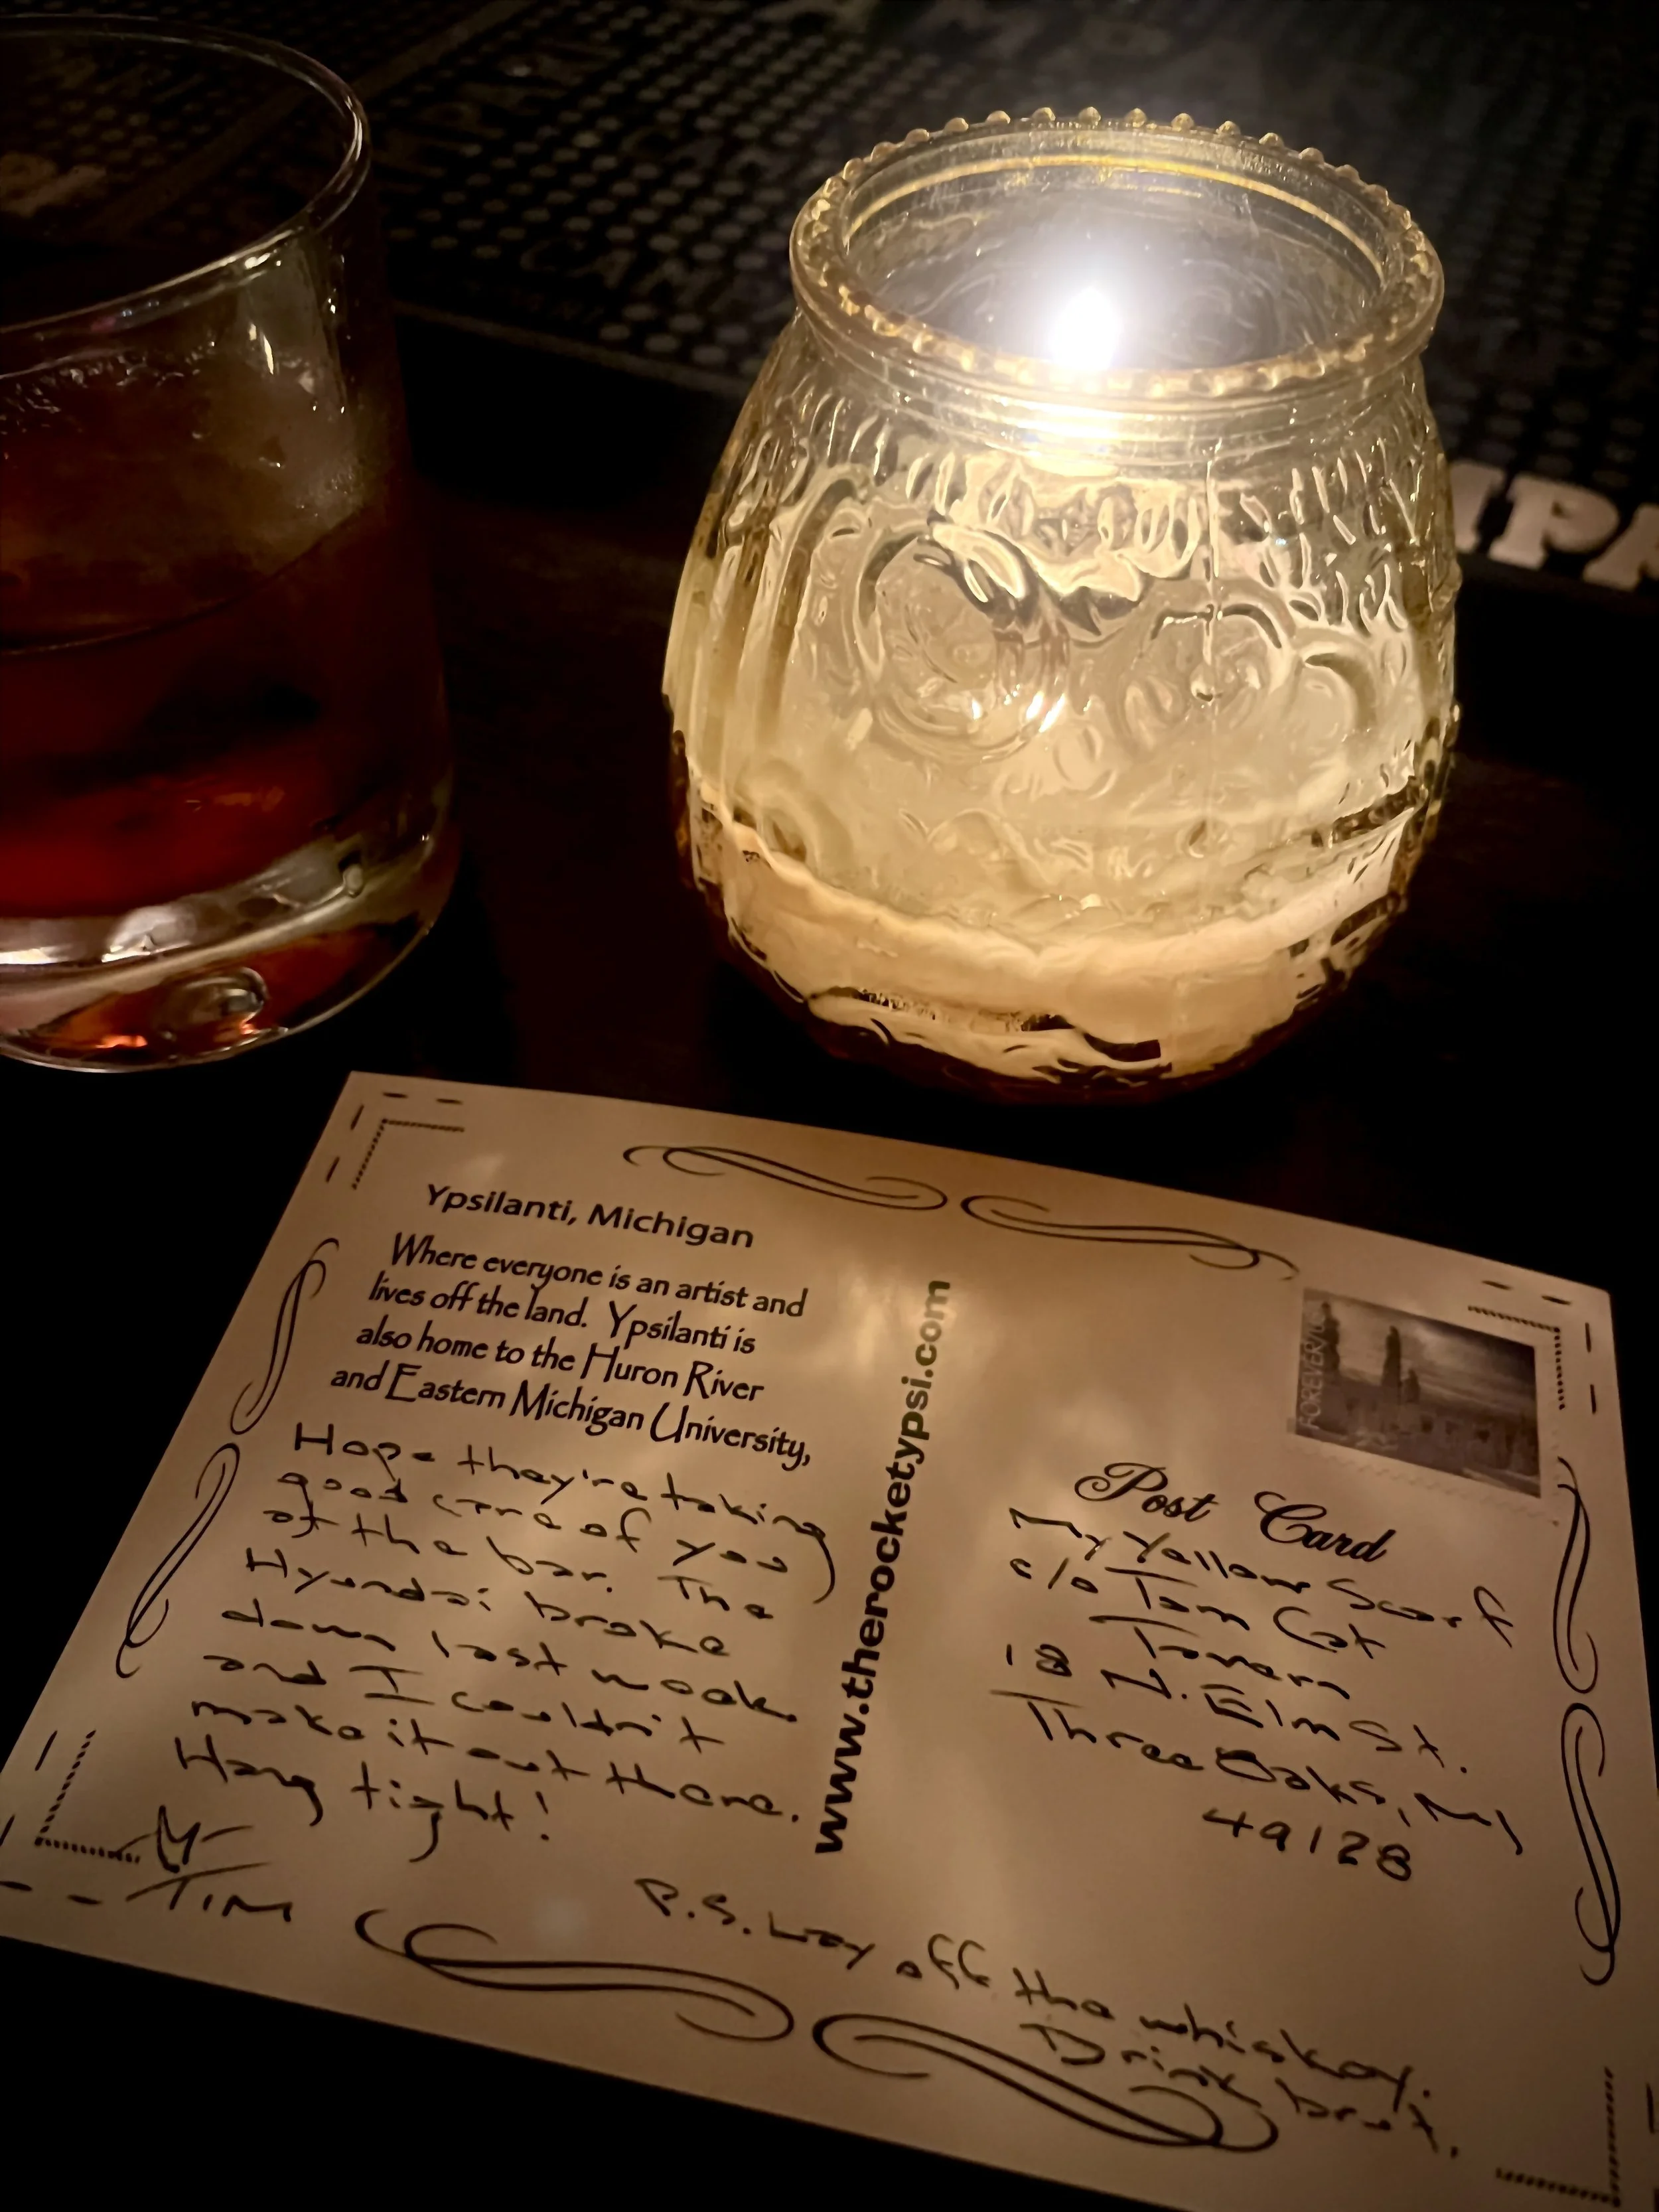 CAMPARI
CAMPARI
Ypsilanti, Michigan
Where everyone is an artist and
lives off the land. Ypsilanti is
also home to the Huron River
and Eastern Michigan University,
Hope they're taking
good care of you
at the bar. The
Hyundai broke
down last week
and I couldn't
make it out there.
Hang tight!
TIM
www.therocketypsi.com
FOREVER
Post Card
My Yellow Scarf
c/o Tom Cat
Tavern
18 N. Elm St.
Three Oaks, MI
49128
P.S. Lay off the whiskey.
Drink